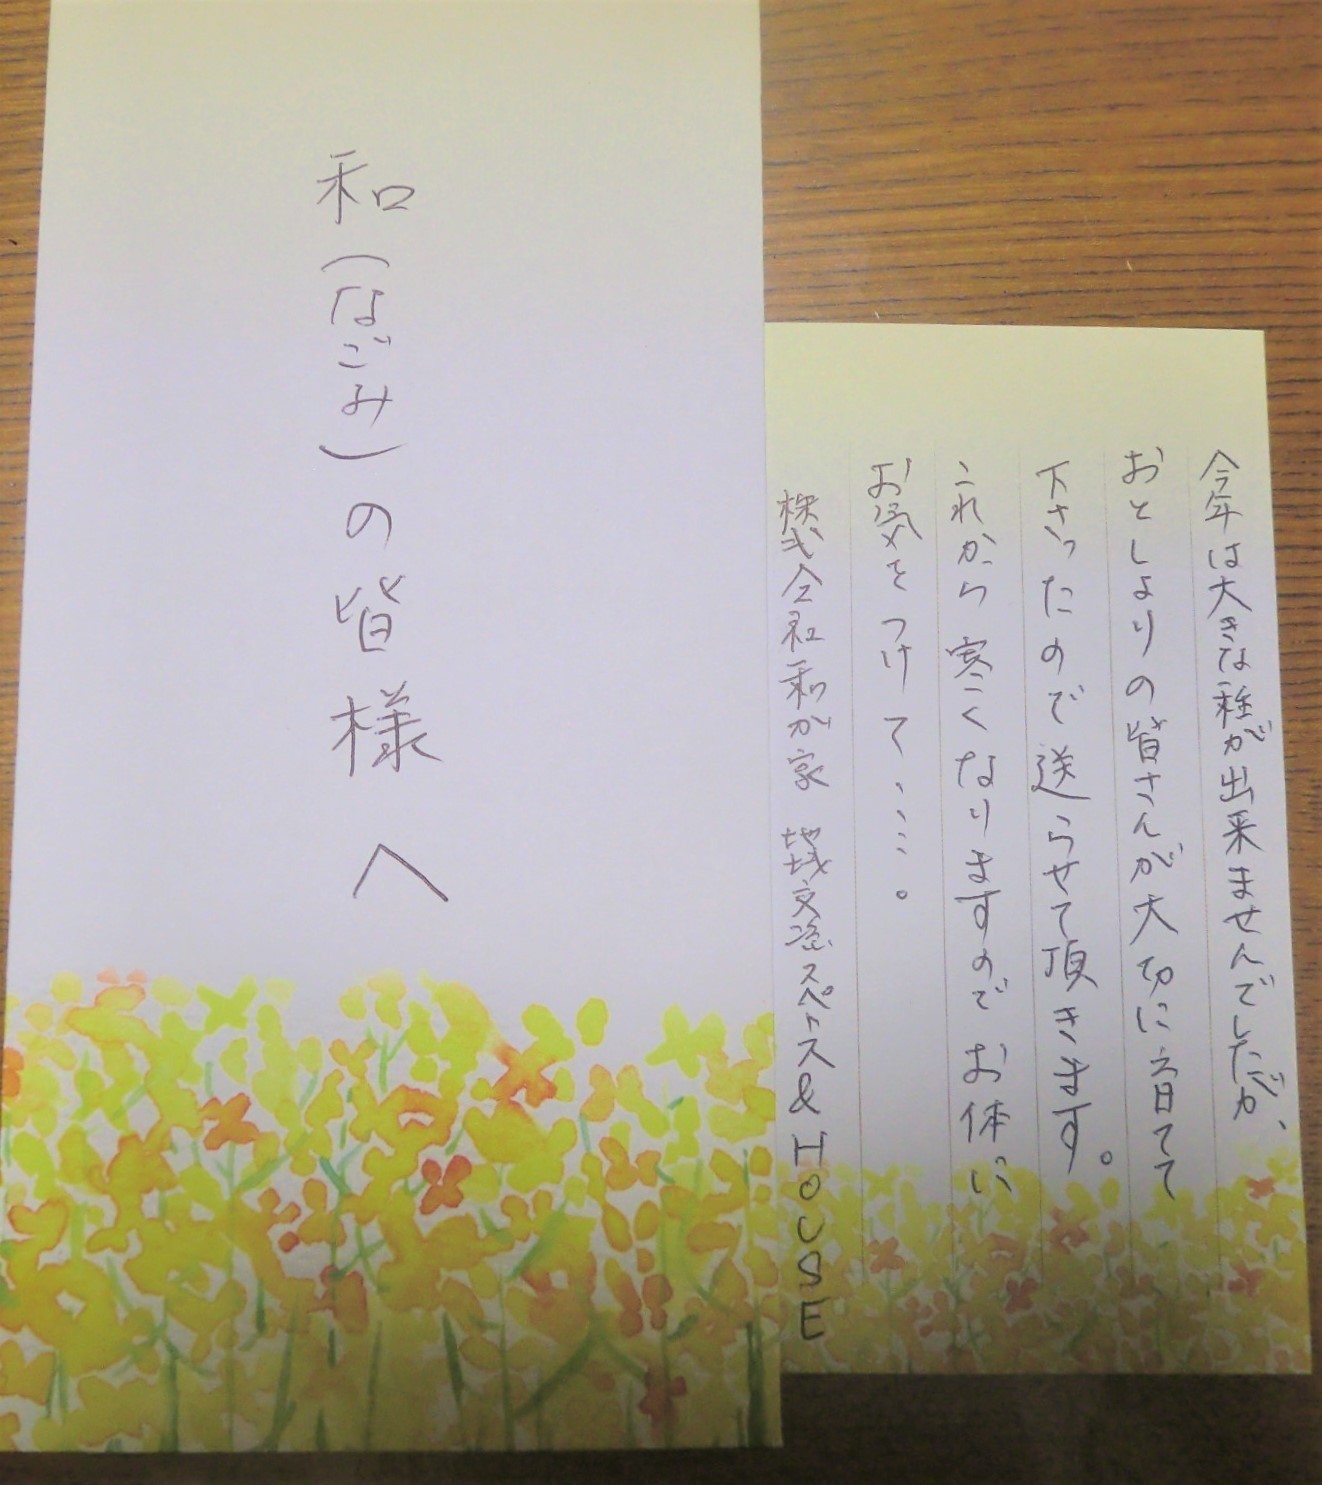 和(なごみ)の皆様へ
今年は大きな種が出来ませんでしたが、
おとしよりの皆さんが大切に育てて
下さったので送らせて頂きます。
これから寒くなりますのでお体に
お気をつけて、…。
株式会社和が家 地域交流スペース&HOUSE